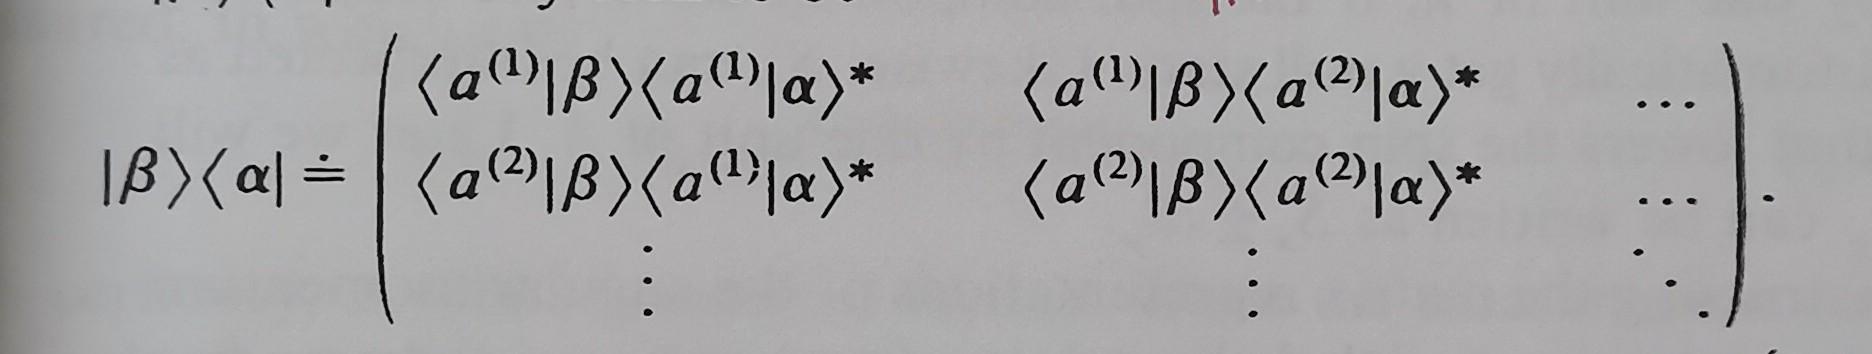 ⟨a⁽¹⁾|β⟩⟨a⁽¹⁾|α⟩* ⟨a⁽¹⁾|β⟩⟨a⁽²⁾|α⟩* ...
|β⟩⟨α| ≐ ⟨a⁽²⁾|β⟩⟨a⁽¹⁾|α⟩* ⟨a⁽²⁾|β⟩⟨a⁽²⁾|α⟩* ... .
⋮ ⋮ ⋱